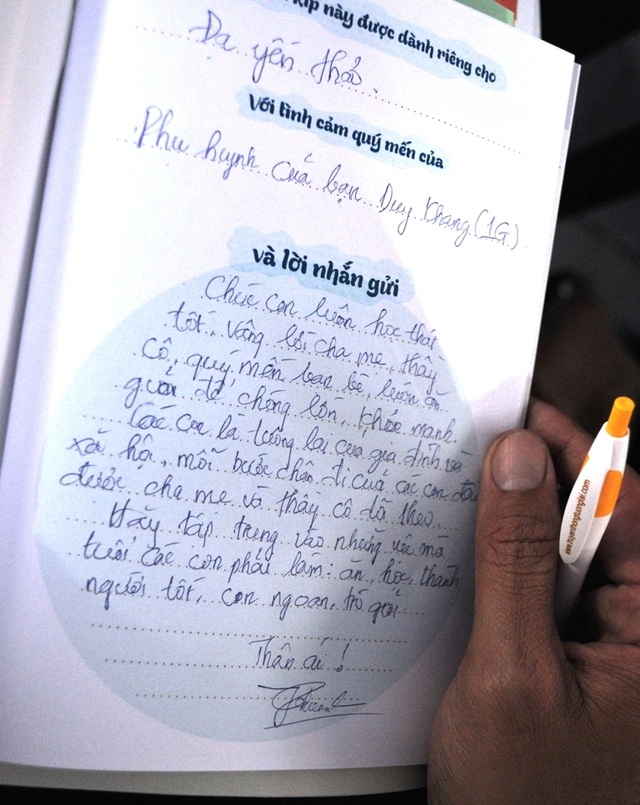 kíp này được dành riêng cho
Dạ yến thảo.
Với tình cảm quý mến của
Phu huynh của bạn Duy Khang (1G)
và lời nhắn gửi
Chúc con luôn học thật
tốt, vâng lời cha mẹ, thầy
cô, quý mến bạn bè, luôn ăn
giỏi để chóng lớn, khỏe mạnh.
Các con là tương lai của gia đình và
xã hội, mỗi bước chân đi của các con đều
được cha mẹ và thầy cô dõi theo.
Hãy tập trung vào những việc mà
tuổi các con phải làm: ăn, học, thành
người tốt, con ngoan, trò giỏi
Thân ái!